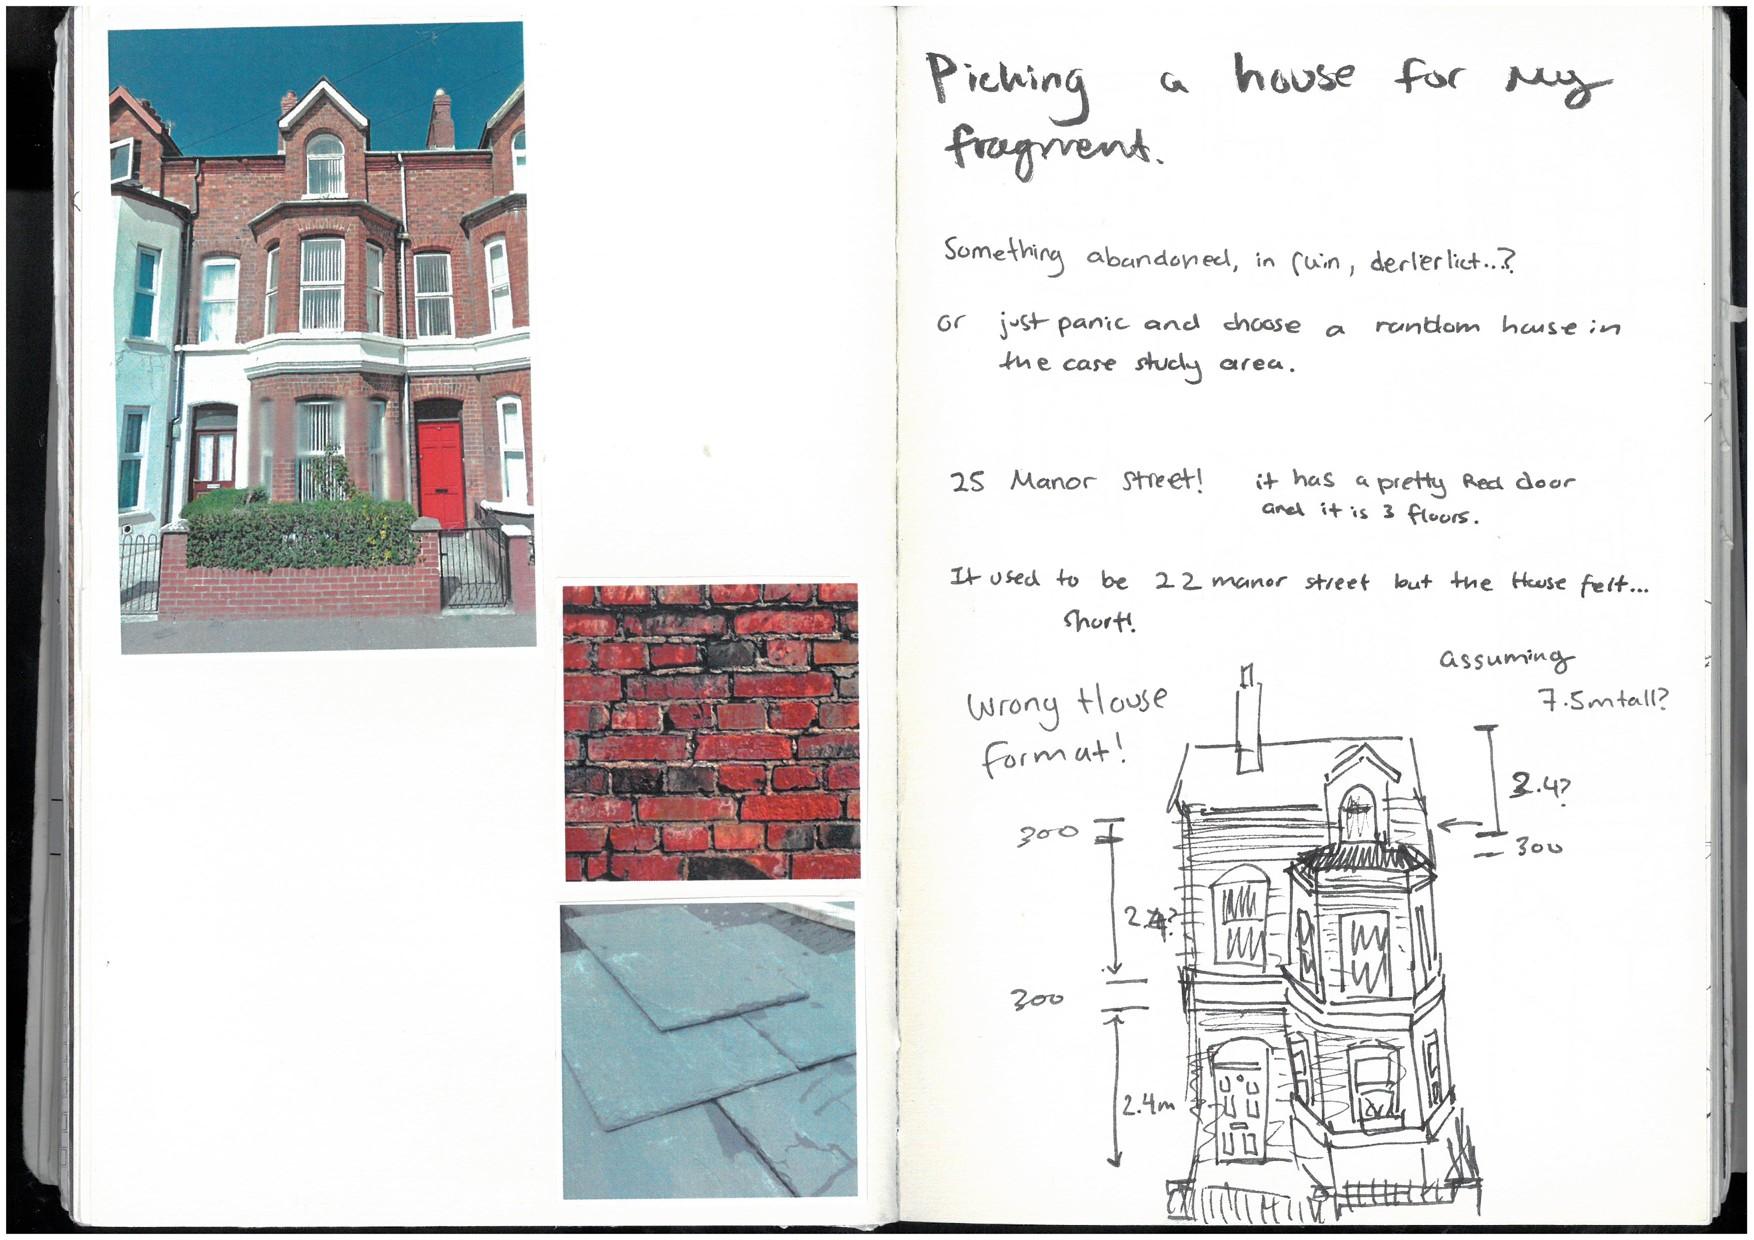 Picking a house for my
fragment.
Something abandoned, in ruin, derlerlict...?
or just panic and choose a random house in
the case study area.
25 Manor Street! it has a pretty Red door
and it is 3 floors.
It used to be 22 manor street but the House felt...
short!
assuming
7.5m tall?
Wrong House
format!
2.4?
300
300
2.4?
300
2.4m